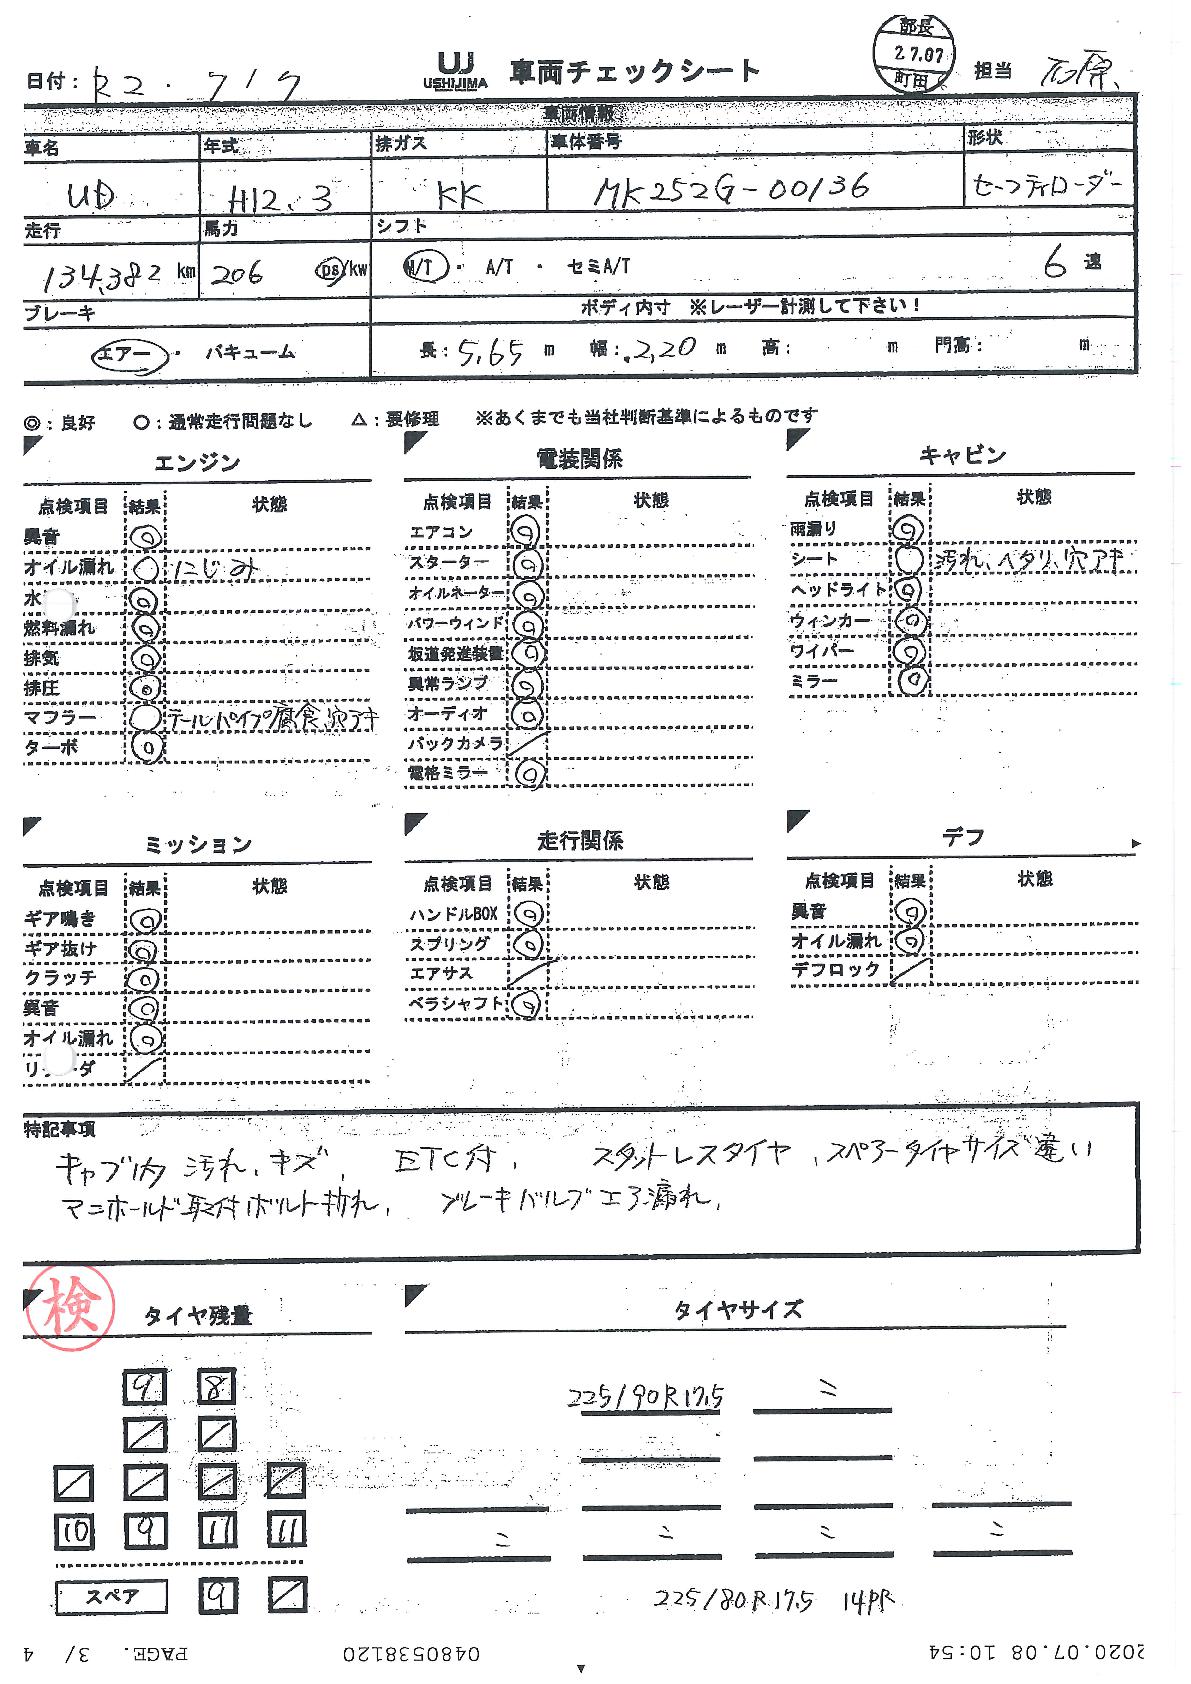 部長
2.7.07
町田
日付： R2 . 7/7 UJ USHIJIMA 車両チェックシート 担当 石原
車両情報
車名 年式 排ガス 車体番号 形状
UD H12.3 KK MK252G-00136 セーフティローダー
走行 馬力 シフト
134,382 km 206 ps/kw M/T ・ A/T ・ セミA/T 6 速
ブレーキ ボディ内寸 ※レーザー計測して下さい！
エアー ・ バキューム 長： 5.65 m 幅： 2.20 m 高： m 門高： m
◎：良好 〇：通常走行問題なし △：要修理 ※あくまでも当社判断基準によるものです
エンジン
点検項目 結果 状態
異音 ◎
オイル漏れ 〇 にじみ
水 ◎
燃料漏れ ◎
排気 ◎
排圧 ◎
マフラー 〇 テールパイプ腐食、穴アキ
ターボ ◎
電装関係
点検項目 結果 状態
エアコン ◎
スターター ◎
オイルネーター ◎
パワーウィンド ◎
坂道発進装置 ◎
異常ランプ ◎
オーディオ ◎
バックカメラ ／
電格ミラー ◎
キャビン
点検項目 結果 状態
雨漏り ◎
シート 〇 汚れ、ヘタリ、穴アキ
ヘッドライト ◎
ウィンカー ◎
ワイパー ◎
ミラー ◎
ミッション
点検項目 結果 状態
ギア鳴き ◎
ギア抜け ◎
クラッチ ◎
異音 ◎
オイル漏れ ◎
リ ーダ ／
走行関係
点検項目 結果 状態
ハンドルBOX ◎
スプリング ◎
エアサス ／
ペラシャフト ◎
デフ
点検項目 結果 状態
異音 ◎
オイル漏れ ◎
デフロック ／
特記事項
キャブ内 汚れ、キズ、 ETC付、 スタットレスタイヤ、スペアータイヤサイズ違い
マニホールド取付ボルト折れ、 ブレーキバルブエア漏れ、
検
タイヤ残量
9 8
／ ／
／ ／ ／ ／
10 9 11 11
スペア 9 ／
タイヤサイズ
225/90R17.5 〃
〃 〃 〃 〃
225/80R17.5 14PR
2020.07.08 10:54 0480538120 PAGE. 3/ 4